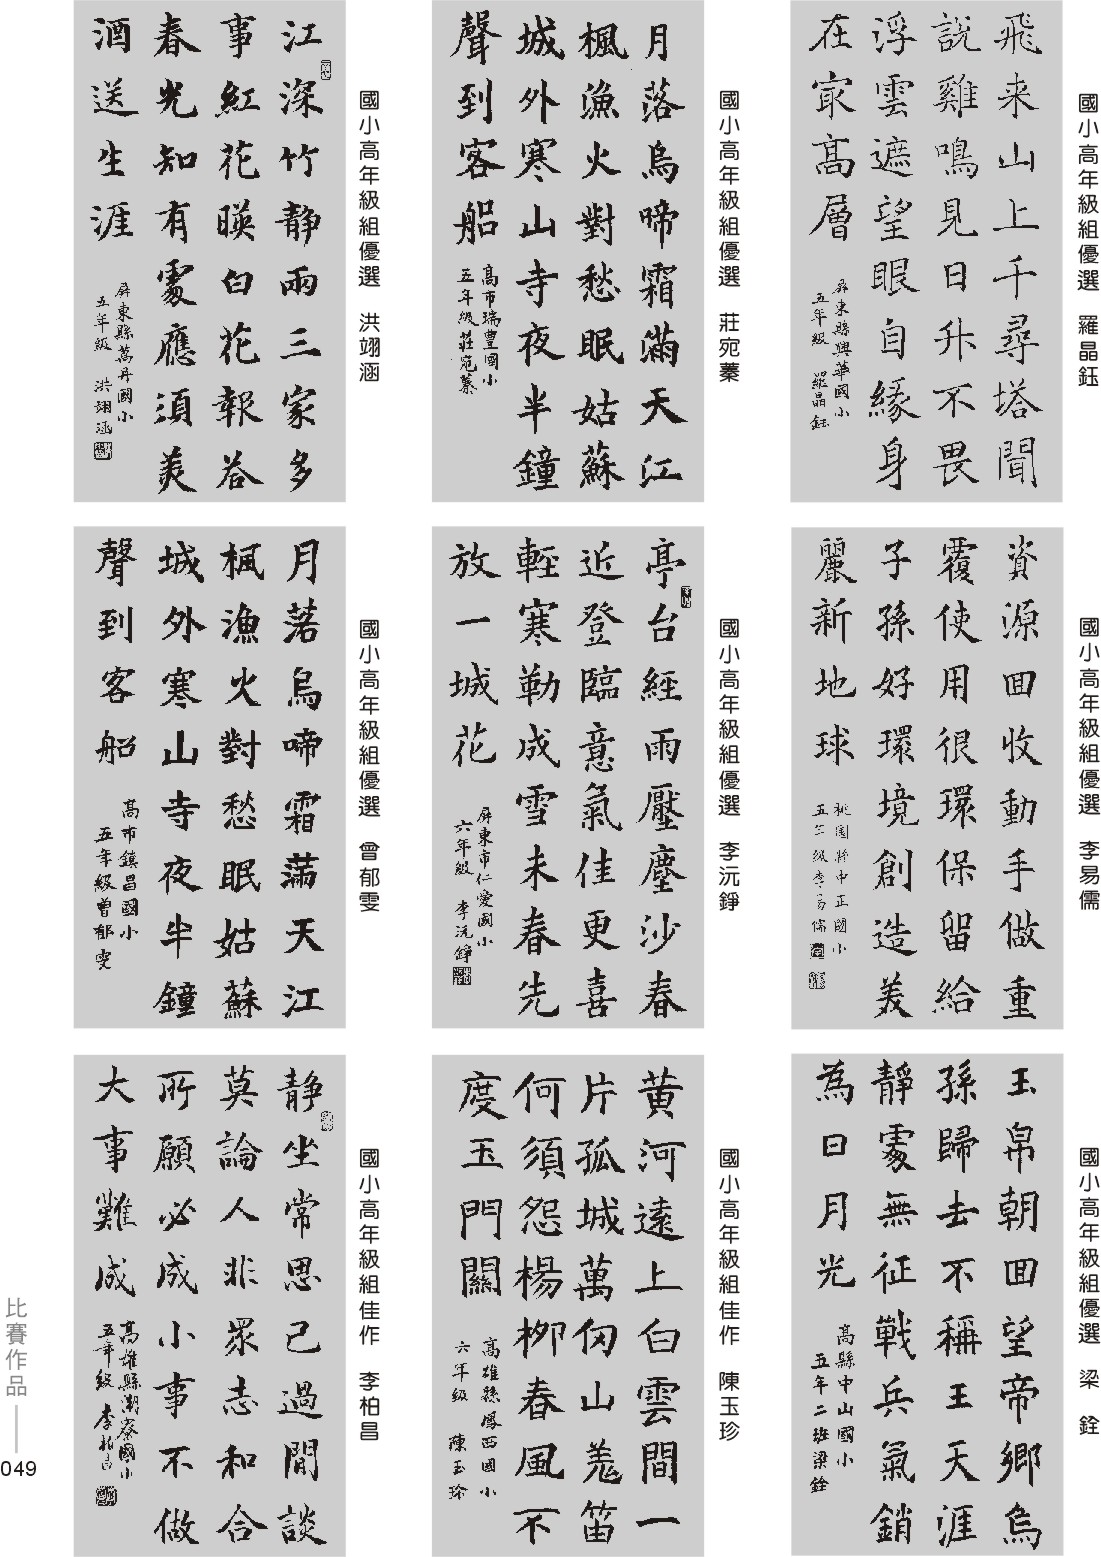 飛来山上千尋塔聞
說雞鳴見日升不畏
浮雲遮望眼自緣身
在家高層
屏東縣興華國小
五年級 羅晶鈺
國小高年級組優選 羅晶鈺
月落烏啼霜滿天江
楓漁火對愁眠姑蘇
城外寒山寺夜半鐘
聲到客船
高市瑞豐國小
五年級莊宛蓁
國小高年級組優選 莊宛蓁
江深竹静兩三家多
事紅花暎白花報答
春光知有處應須美
酒送生涯
屏東縣萬丹國小
五年級 洪翊涵
國小高年級組優選 洪翊涵
資源回收動手做重
覆使用很環保留給
子孫好環境創造美
麗新地球
桃園縣中正國小
五年級李易儒
國小高年級組優選 李易儒
亭台經雨壓塵沙春
近登臨意氣佳更喜
輕寒勒成雪未春先
放一城花
屏東市仁愛國小
六年級 李沅錚
國小高年級組優選 李沅錚
月落烏啼霜滿天江
楓漁火對愁眠姑蘇
城外寒山寺夜半鐘
聲到客船
高市鎮昌國小
五年級曾郁雯
國小高年級組優選 曾郁雯
玉帛朝回望帝鄉烏
孫歸去不稱王天涯
靜處無征戰兵氣銷
為日月光
高縣中山國小
五年二班梁銓
國小高年級組優選 梁 銓
黃河遠上白雲間一
片孤城萬仞山羌笛
何須怨楊柳春風不
度玉門關
高雄縣鳳西國小
六年級 陳玉珍
國小高年級組佳作 陳玉珍
静坐常思己過閒談
莫論人非眾志和合
所願必成小事不做
大事難成
高雄縣潮寮國小
五年級 李柏昌
國小高年級組佳作 李柏昌
比賽作品
049